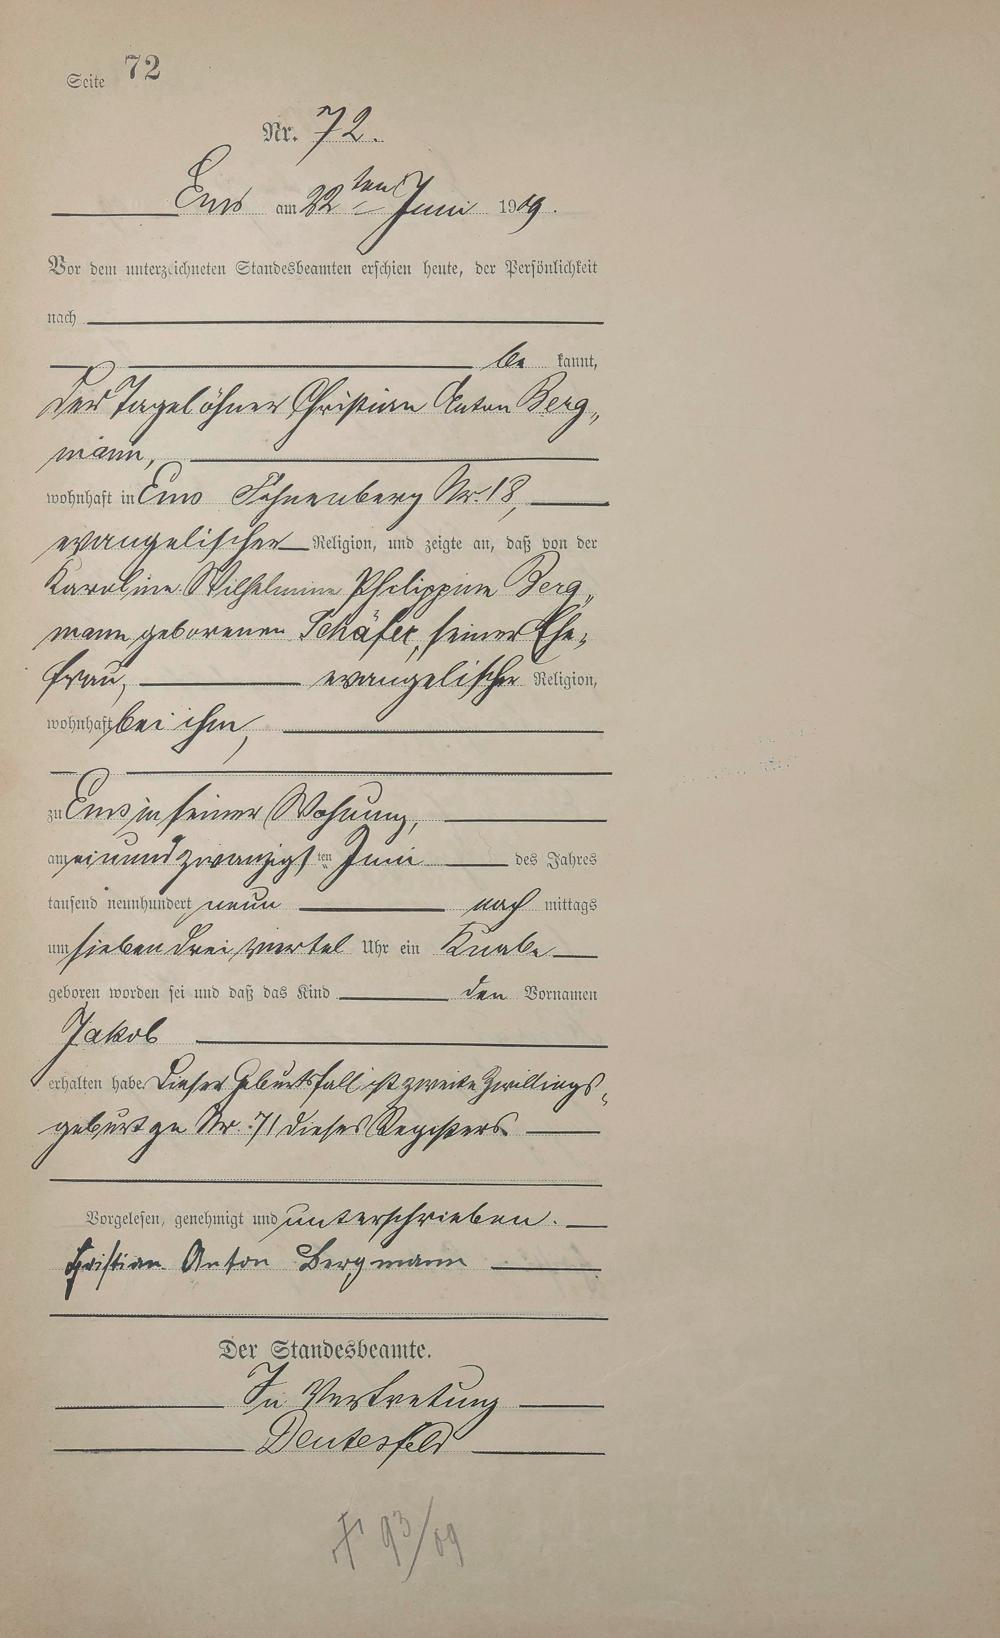 Seite 72
Nr. 72.
Ems am 22ten Juni 1909.
Vor dem unterzeichneten Standesbeamten erschien heute, der Persönlichkeit
nach
be kannt,
der Tagelöhner Christian Anton Berg„
mann,
wohnhaft in Ems Nr. 18,
evangelischer Religion, und zeigte an, daß von der
Karoline Wilhelmine Philippine Berg„
mann, geborenen Schäfer, seiner Ehe„
frau, evangelischer Religion,
wohnhaft bei ihm,
zu Ems in seiner Wohnung,
am einundzwanzigsten Juni des Jahres
tausend neunhundert neun nach mittags
um sieben drei viertel Uhr ein Knabe
geboren worden sei und daß das Kind den Vornamen
Jakob
erhalten habe. Dieser Geburtsfall ist zweite Zwillings„
geburt zu Nr. 71 dieses Registers.
Vorgelesen, genehmigt und unterschrieben.
Christian Anton Bergmann
Der Standesbeamte.
In Vertretung
Deutesfeld
† 93/09